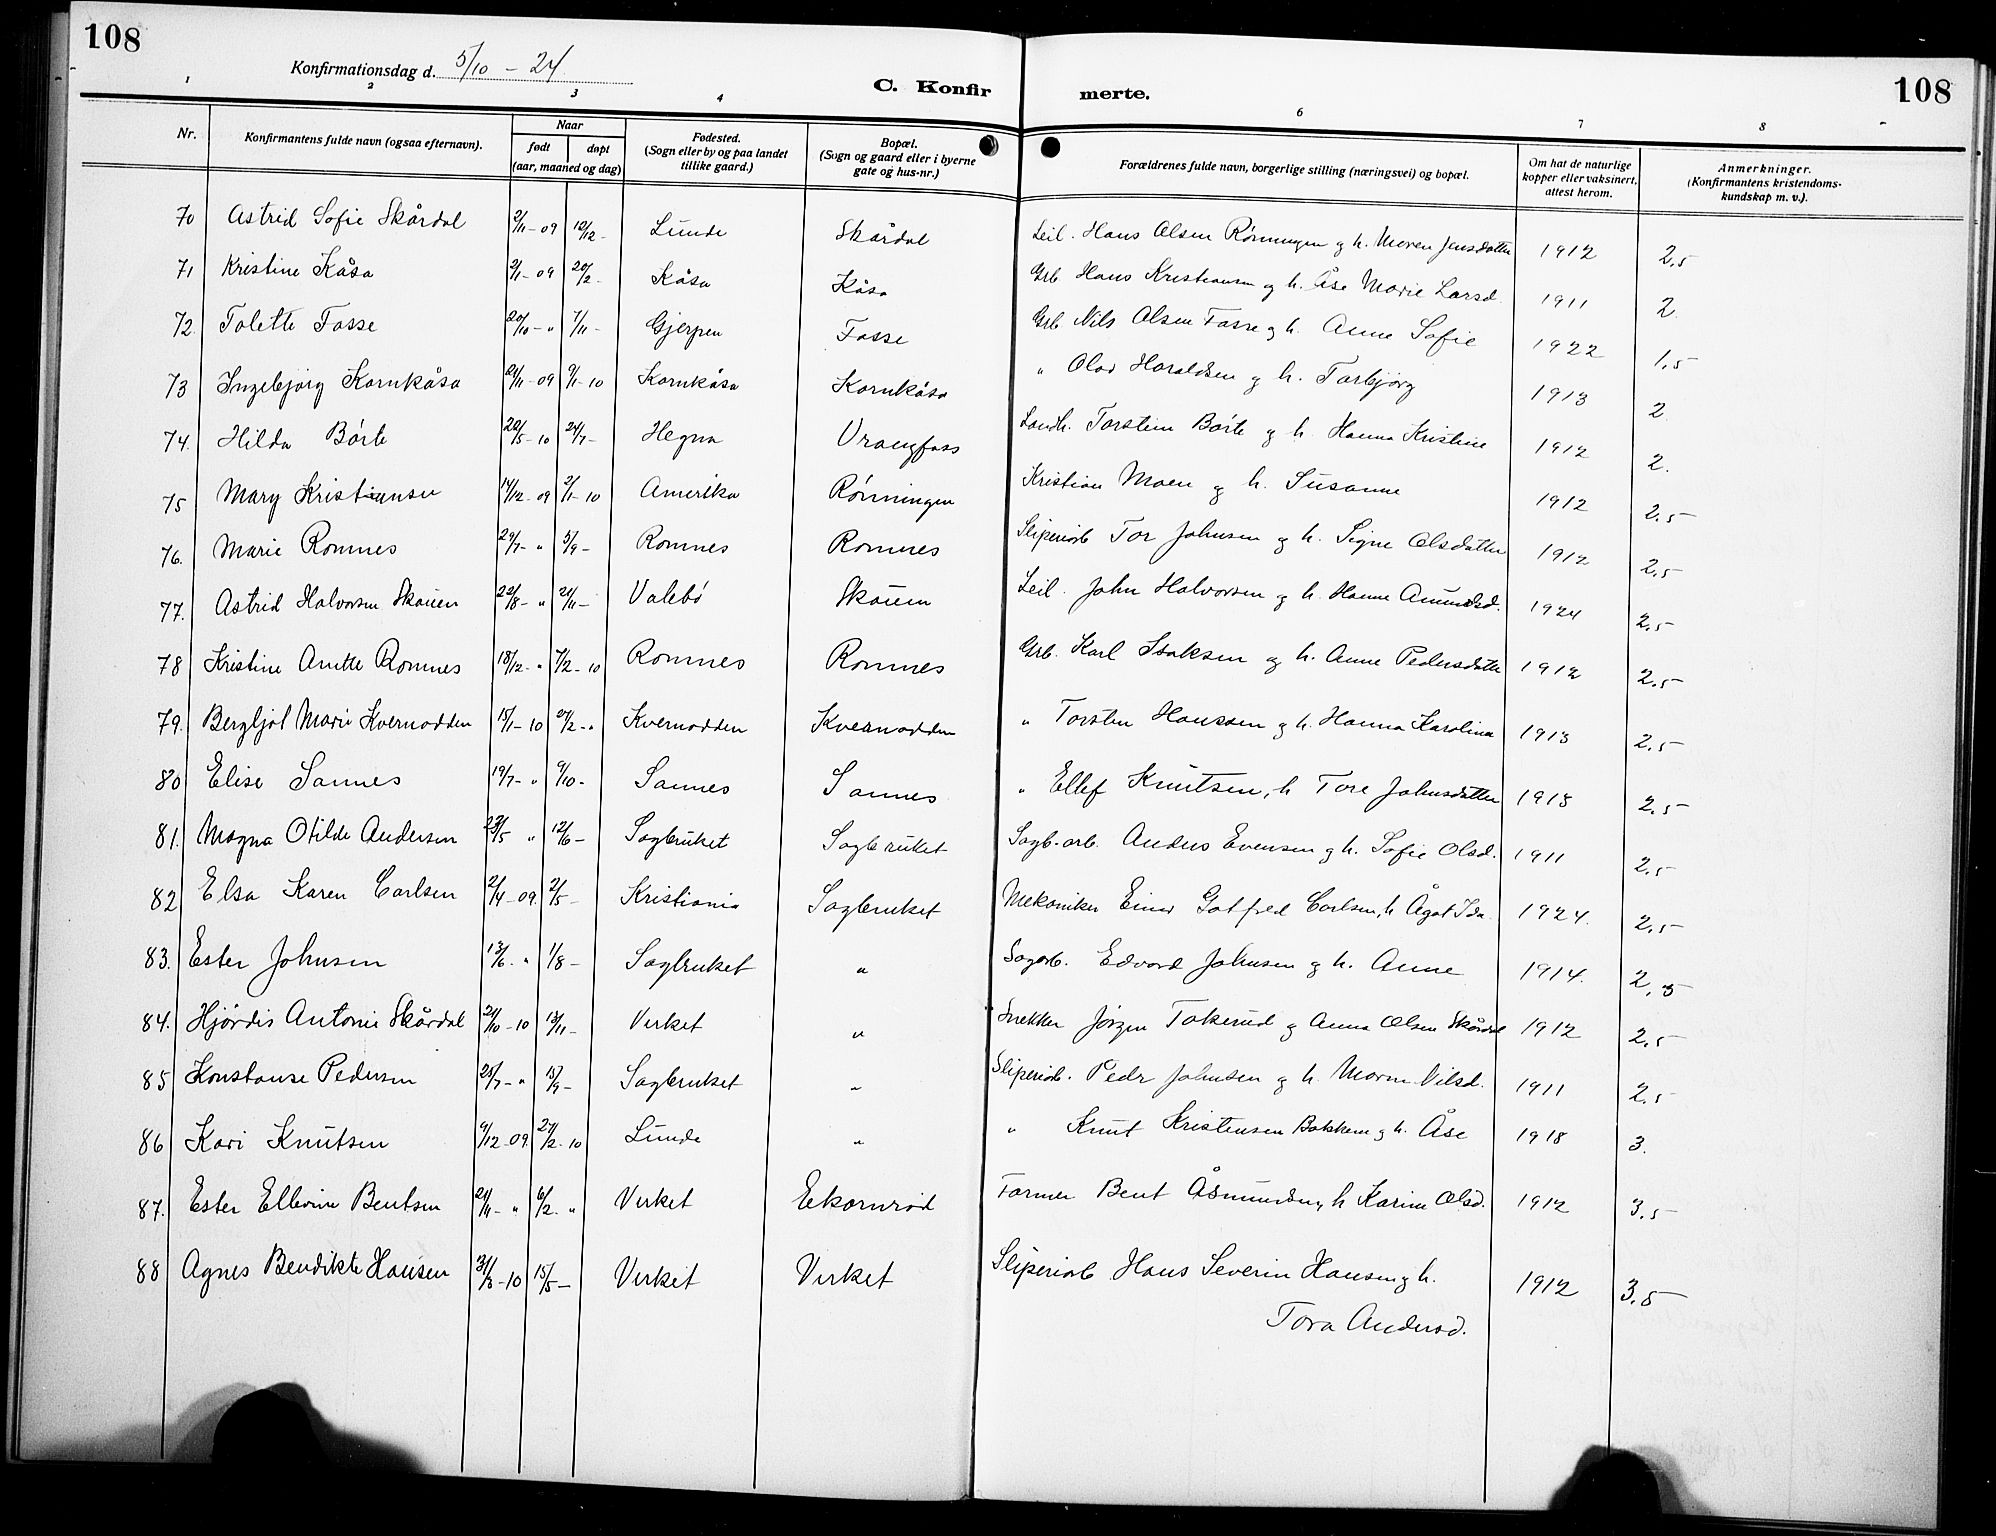 108
108
Konfirmationsdag d. 5/10 - 24
C. Konfirmerte.
1 2 3 4 6 7 8
Nr. Konfirmantens fulde navn (ogsaa efternavn). Naar født døpt (aar, maaned og dag) Fødested. (Sogn eller by og paa landet tillike gaard.) Bopæl. (Sogn og gaard eller i byerne gate og hus-nr.) Forældrenes fulde navn, borgerlige stilling (næringsvei) og bopæl. Om hat de naturlige kopper eller vaksinert, attest herom. Anmerkninger. (Konfirmantens kristendoms-kundskap m. v.).
70 Astrid Sofie Skårdal 2/11-09 12/12- Lunde Skårdal Leil. Hans Olsen Rønningen og h. Maren Jensdatter 1912 2.5
71 Kristine Kåsa 2/1-09 20/2- Kåsa Kåsa Grb Hans Kristiansen og h. Åse Marie Larsd. 1911 2.
72. Tolette Fosse 20/10- " 7/11- Gjerpen Fosse Grb Nils Olsen Fosse og h. Anne Sofie 1922 1,5
73 Ingebjørg Kornkåsa 21/11-09 9/1-10 Kornkåsa Kornkåsa " Olav Haraldsen og h. Torbjørg 1913 2
74. Hilda Børte 22/5-10 24/7- Hegna Vrangfoss Landh. Torstein Børte og h. Hanna Kristine 1912 2.
75 Mary Kristiansen 14/12-09 2/1-10 Amerika Rønningen Kristian Moen og h. Susanne 1912 2.5
76. Marie Romnes 29/7- " 5/9- Romnes Romnes Sliperiarb Tor Johnsen og h. Signe Olsdatter 1912 2.5
77. Astrid Halvorsen Skauen 22/8- " 21/11- Valebø Skauen Leil. John Halvorsen og h. Hanne Amundsd. 1924 2.5
78 Kristine Anette Romnes 18/12- " 7/2-10 Romnes Romnes Grb. Karl Isaksen og h. Anne Pedersdatter 1912 2.5
79. Bergljot Marie Kvernodden 15/1-10 27/2- " Kvernodden Kvernodden " Torsten Hanssen og h. Hanna Karolina 1913 2.5
80 Elise Sannes 19/7- " 9/10- Sannes Sannes " Ellef Knutsen, h Tore Johnsdatter 1913 2.5
81. Magna Otilde Andersen 29/5 " 12/6- Sagbruket Sagbruket Sagb.arb. Anders Evensen og h. Sofie Olsd. 1911 2.5
82 Elsa Karen Carlsen 2/4-09. 2/5- Kristiania Sagbruket Mekaniker Einar Gotfred Carlsen, h Ågot Ida. 1924. 2.5
83. Ester Johnsen 13/6- " 1/8- Sagbruket " Sagarb. Edvard Johnsen og h. Anne 1914. 2,5
84. Hjørdis Antonie Skårdal 21/10-10 13/11- Verket " Snekker Jørgen Tokerud og Anna Olsen Skårdal 1912 2.5
85 Konstanse Pedersen 25/7- " 15/9- Sagbruket " Sliperiarb. Pedr Johnsen og h. Maren Nilsd. 1911 2.5
86 Kari Knutsen 9/12-09. 27/2-10 Lunde " " Knut Kristensen Bakken og h. Åse 1918 3.
87. Ester Ellevine Bentsen 21/11- " 6/2- " Verket Ekornrød Former Bent Åsmundsen, h Karine Olsd. 1912 3.5
88 Agnes Bendikte Hansen 31/3-10 15/5- Verket Verket Sliperiarb Hans Severin Hansen og h. 1912 3.5
Tora Andersd.